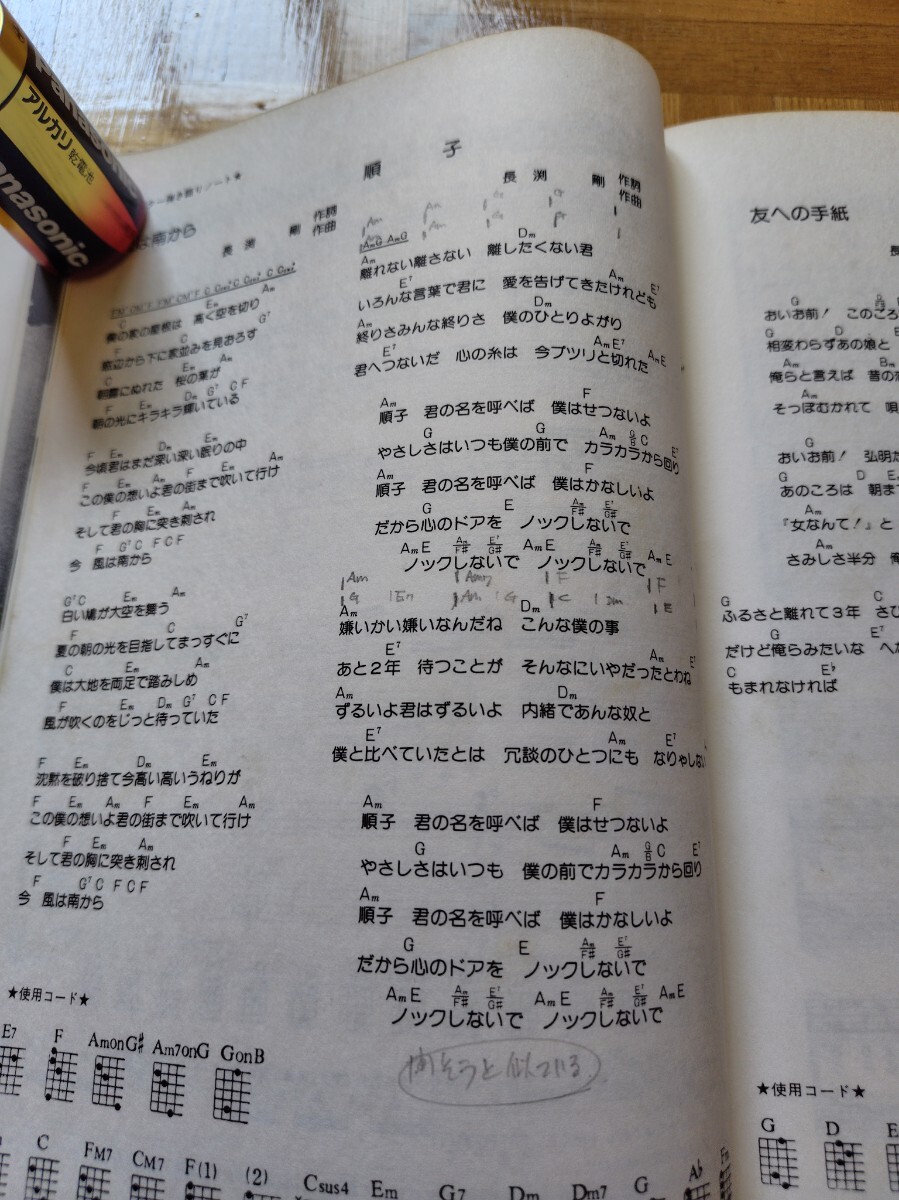 Panasonic
アルカリ乾電池
Panasonic
弾き語りシート★
風は南から
長渕 剛 作詞
作曲
C Em Am
僕の家の屋根は 高く空を切り
F C G7
窓辺から下に家並みを見おろす
C Em Am
朝露にぬれた 桜の葉が
F Em Dm G7 C F
朝の光にキラキラ輝いている
F Em Dm Em
今頃君はまだ深い深い眠りの中
F Em Am F Em Am
この僕の想いよ君の街まで吹いて行け
F Em Am
そして君の胸に突き刺され
F G7 C F C F
今 風は南から
G7 C Em Am
白い鳩が大空を舞う
F C G7
夏の朝の光を目指してまっすぐに
C Em Am
僕は大地を両足で踏みしめ
F Em Dm G7 C F
風が吹くのをじっと待っていた
F Em Dm Em
沈黙を破り捨て今高い高いうねりが
F Em Am F Em Am
この僕の想いよ君の街まで吹いて行け
F Em Am
そして君の胸に突き刺され
F G7 C F C F
今 風は南から
順 子
長 渕 剛 作詞
作曲
AmG AmG
Am Dm
離れない離さない 離したくない君
E7 Am E7
いろんな言葉で君に 愛を告げてきたけれども
Am Dm
終りさみんな終りさ 僕のひとりよがり
E7 Am E7 Am E
君へつないだ 心の糸は 今プツリと切れた
Am F
順子 君の名を呼べば 僕はせつないよ
G G Am G/B C E7
やさしさはいつも僕の前で カラカラから回り
Am F
順子 君の名を呼べば 僕はかなしいよ
G E Am/F# E7/G#
だから心のドアを ノックしないで
Am E Am/F# E7/G# Am E Am/F# E7/G# Am E
ノックしないで ノックしないで
Am Am7 F F
G Em Am G C Dm E
Am Dm
嫌いかい嫌いなんだね こんな僕の事
E7 Am E7
あと2年 待つことが そんなにいやだったとわね
Am Dm
ずるいよ君はずるいよ 内緒であんな奴と
E7 Am E7
僕と比べていたとは 冗談のひとつにも なりゃしない
Am F
順子 君の名を呼べば 僕はせつないよ
G Am G/B C E7
やさしさはいつも 僕の前でカラカラから回り
Am F
順子 君の名を呼べば 僕はかなしいよ
G E Am/F# E7/G#
だから心のドアを ノックしないで
Am E Am/F# E7/G# Am E Am/F# E7/G# Am E
ノックしないで ノックしないで
と似ている
★使用コード★
E7 F AmonG# Am7onG GonB
C FM7 CM7 F(1) (2) Csus4 Em G7 Dm Dm7 G Ab Fm
友への手紙
長
G
おいお前! このごろ
G D E
相変わらずあの娘と
Am Bm
俺らと言えば 昔の
Am
そっぽむかれて 唄
G
おいお前! 弘明
G D E
あのころは 朝ま
Am
『女なんて!』と
Am
さみしさ半分 俺
G C
ふるさと離れて3年 さび
G E7
だけど俺らみたいな へ
C E♭
もまれなければ
★使用コード★
G D E